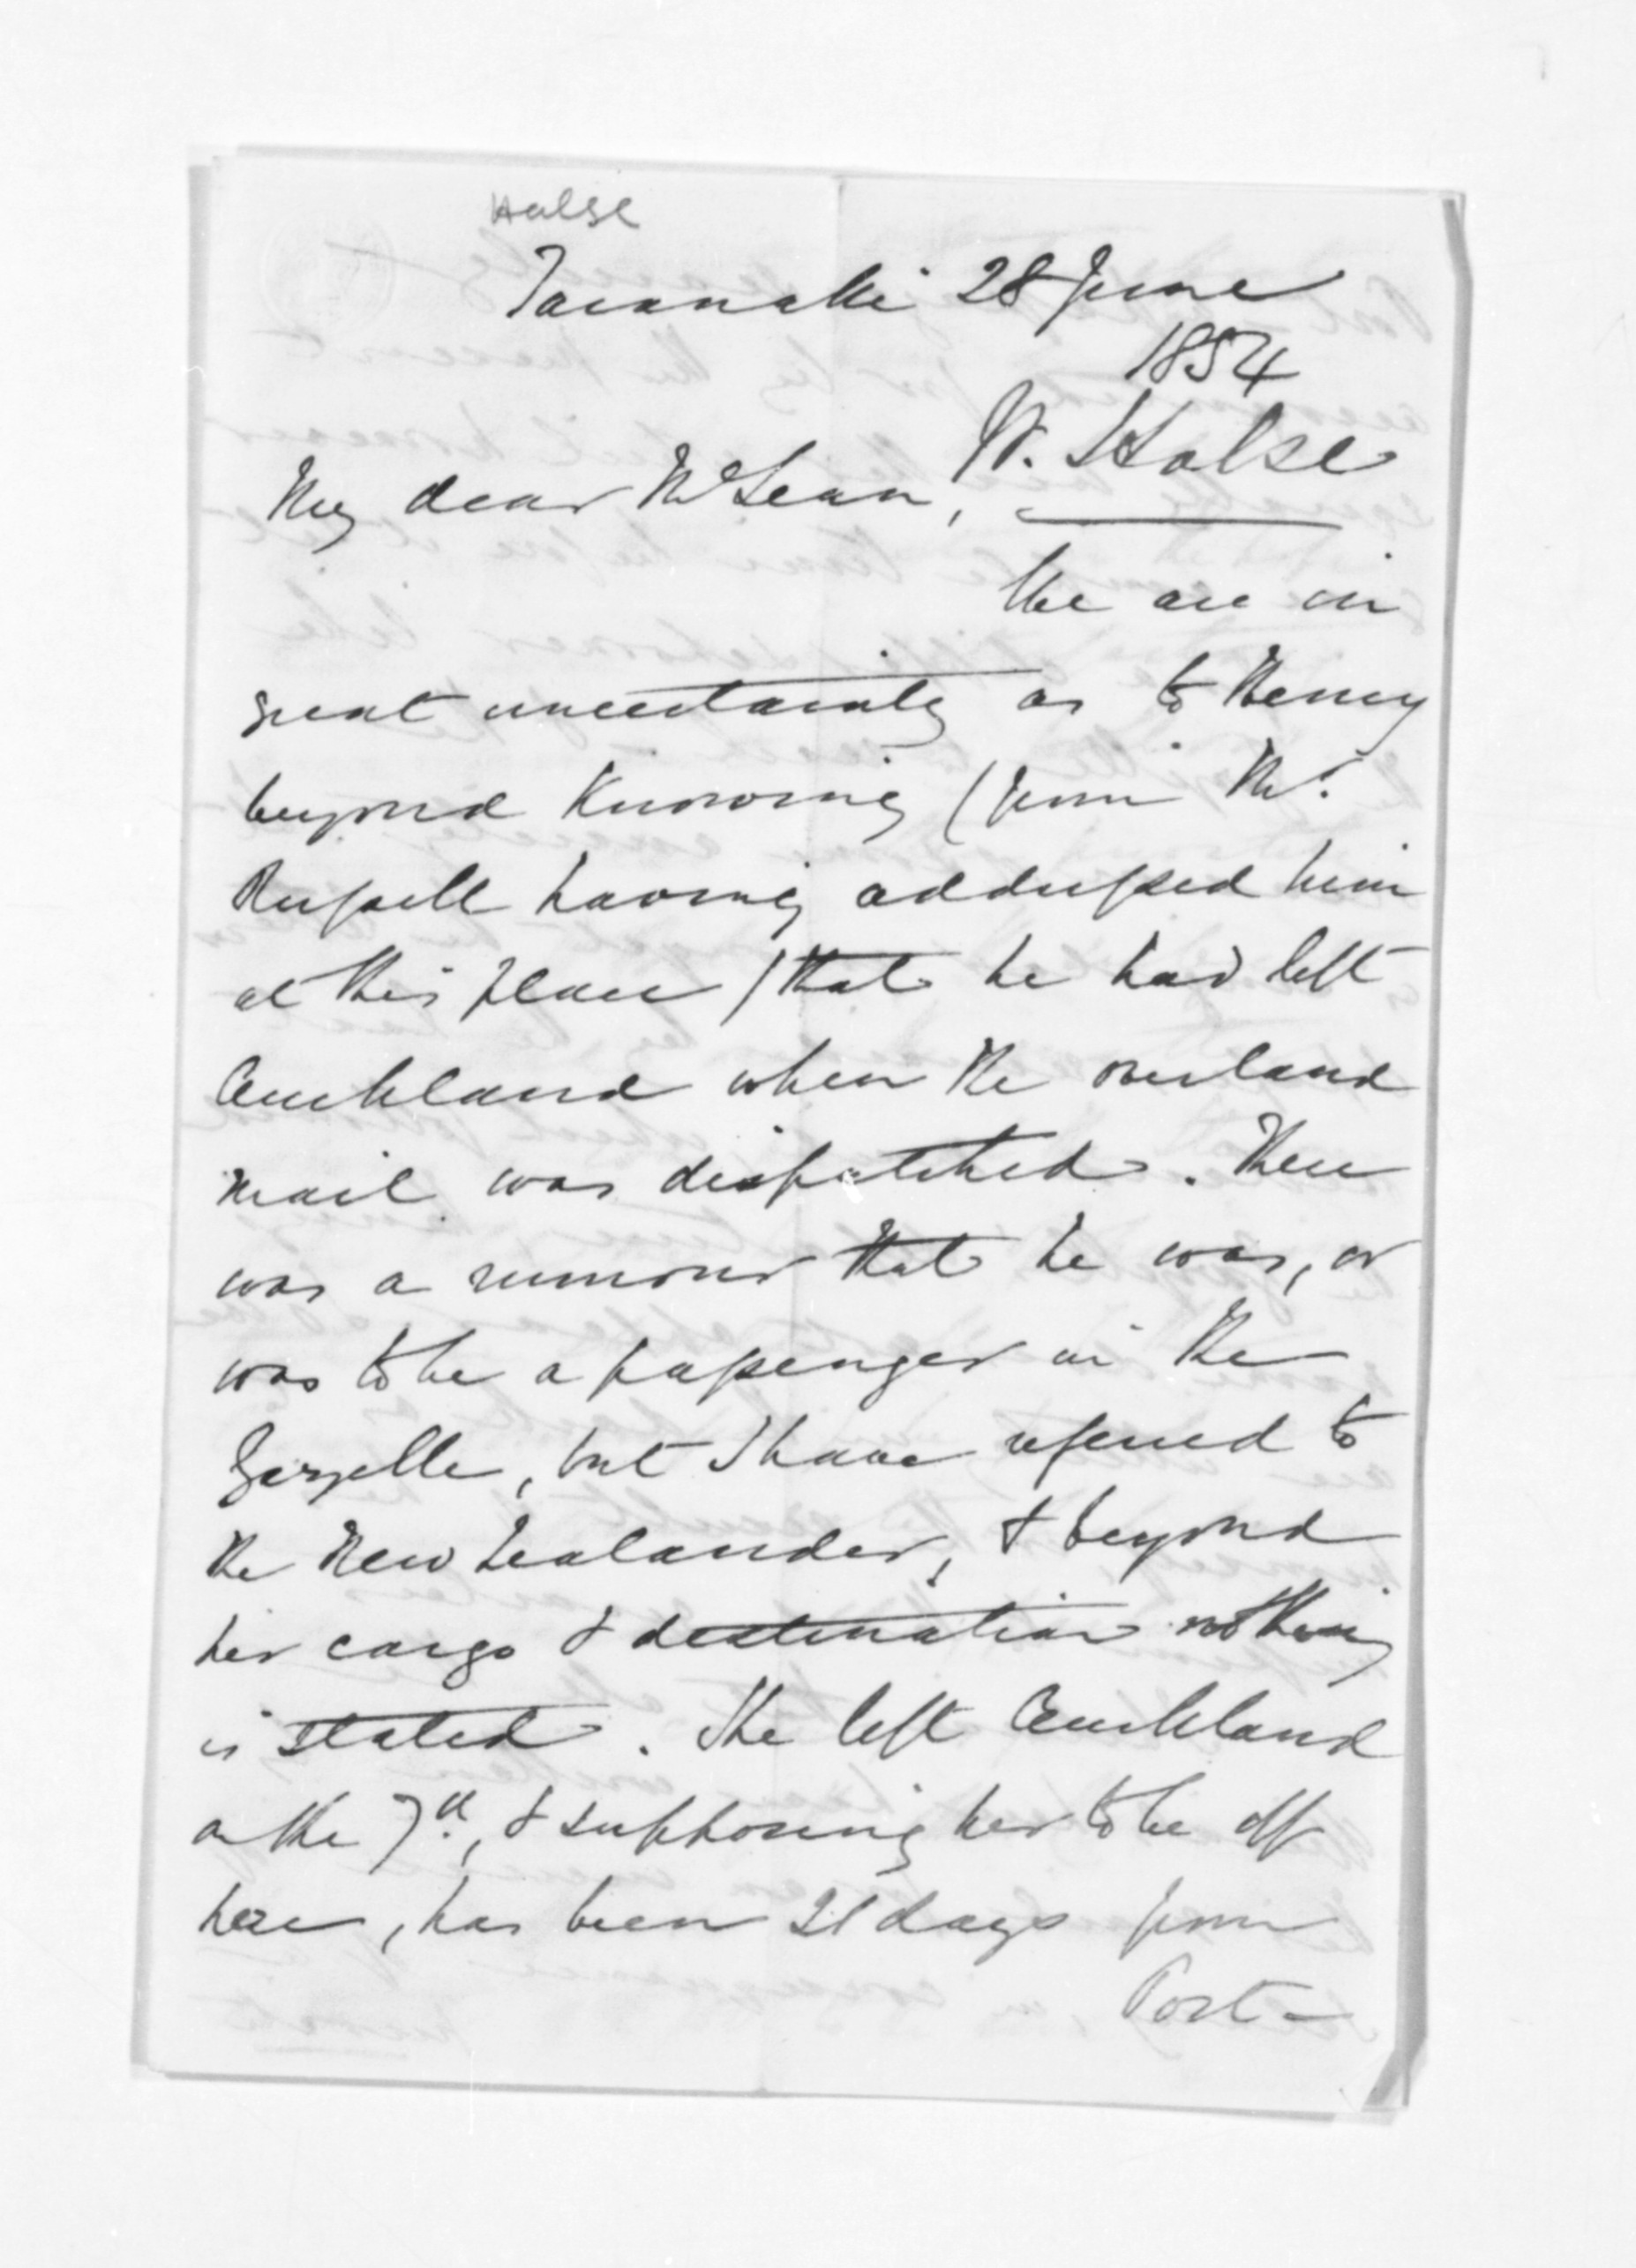 Halse
Taranaki 28 June
1854
W. Halse
My dear McLean,
We are in
great uncertainty as to Henry
beyond knowing (from Mr.
Russell having addressed him
at this place) that he had left
Auckland when the overland
mail was dispatched. There
was a rumour that he was, or
was to be a passenger in the
Gazelle, but I have referred to
the New Zealander, & beyond
her cargo & destination nothing
is stated. She left Auckland
on the 7th, & supposing her to be off
here, has been 21 days from
Port-